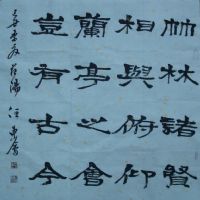 竹林諸賢
相與俯仰
蘭亭之會
豈有古今